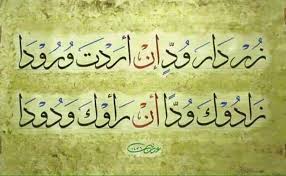 زُرْ دَارَ وُدٍّ إِنْ أَرَدْتَ وُرُودَا
زَادُوكَ وُدًّا أَنْ رَأَوْكَ وَدُودَا